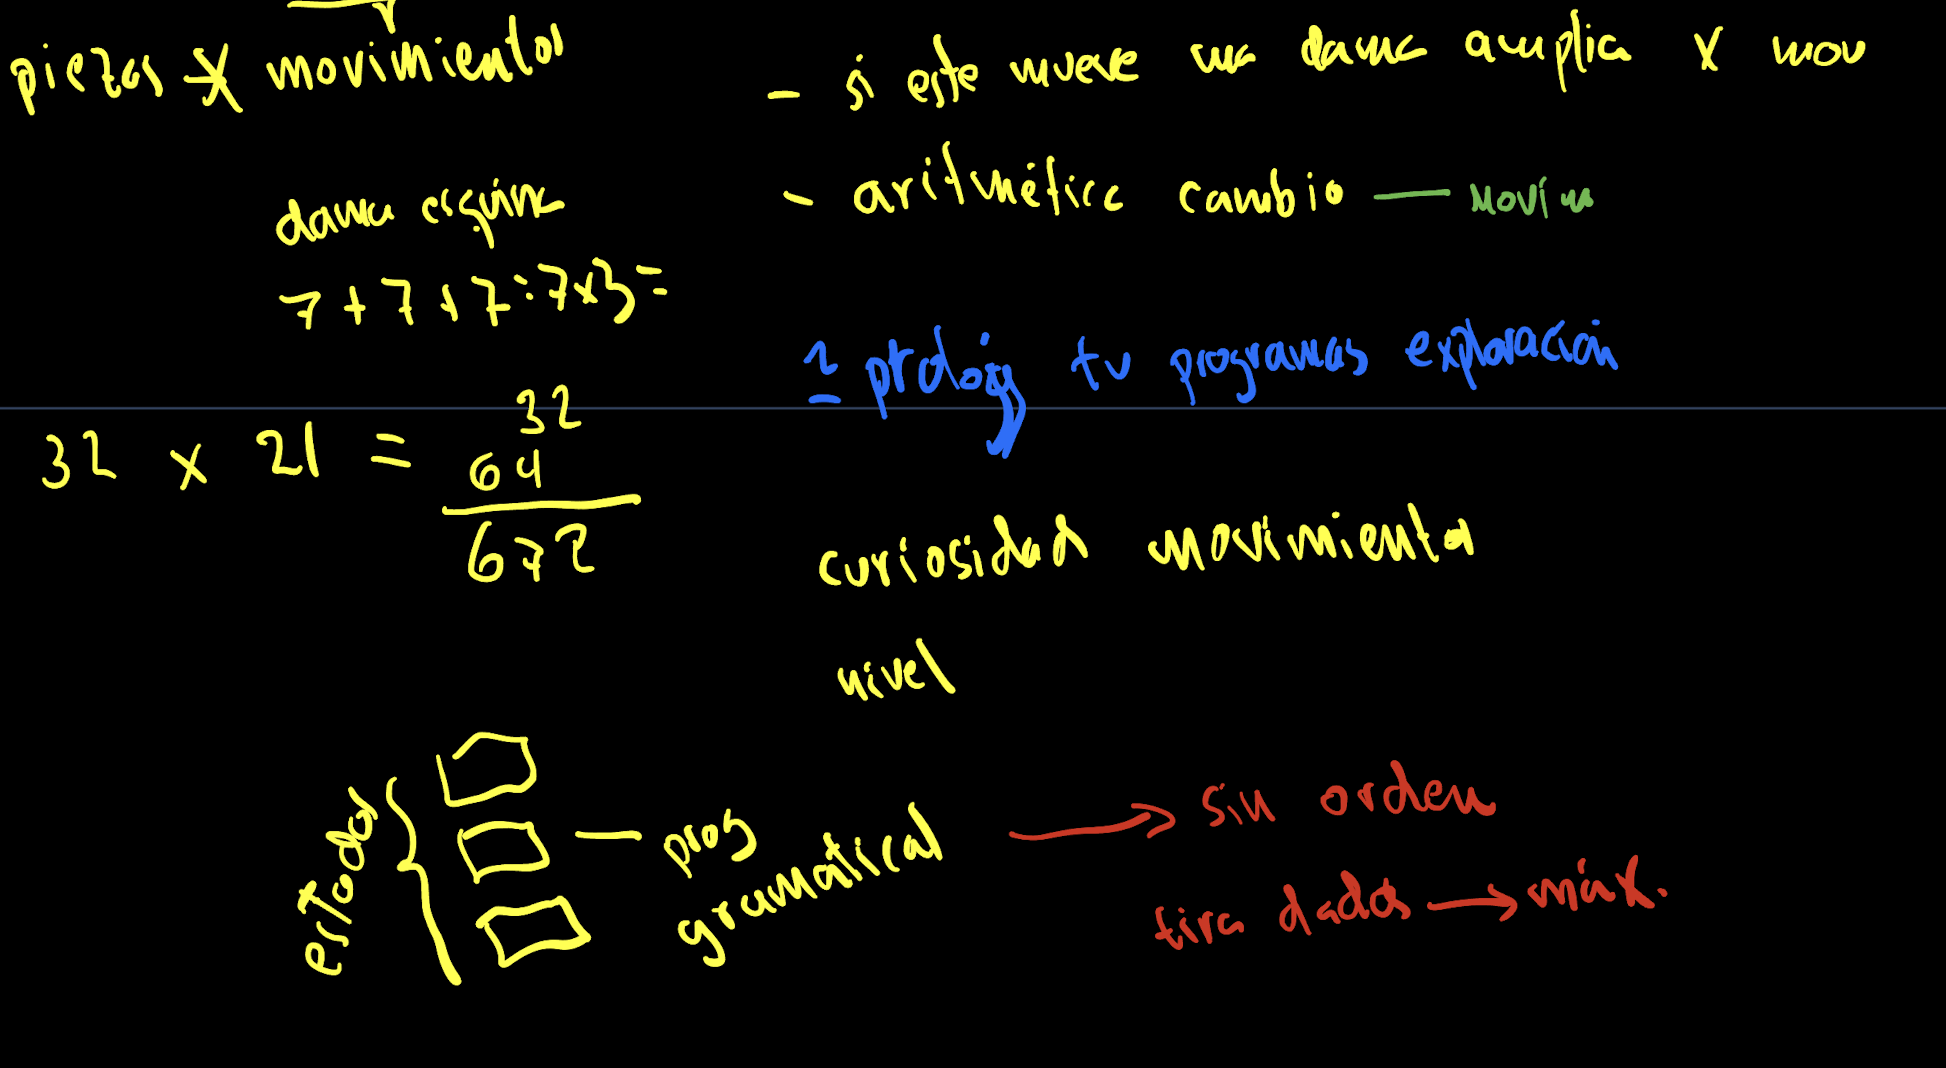 piezas x movimientos
dama esquina
7 + 7 + 7 = 7x3 =
32 x 21 =
32
64
672
- si este mueve una dama amplia x mov
- aritmética cambio — movim
tu programas exploración
curiosidad movimientos
nivel
estados
— prog
gramatical → sin orden
tira dados → máx.